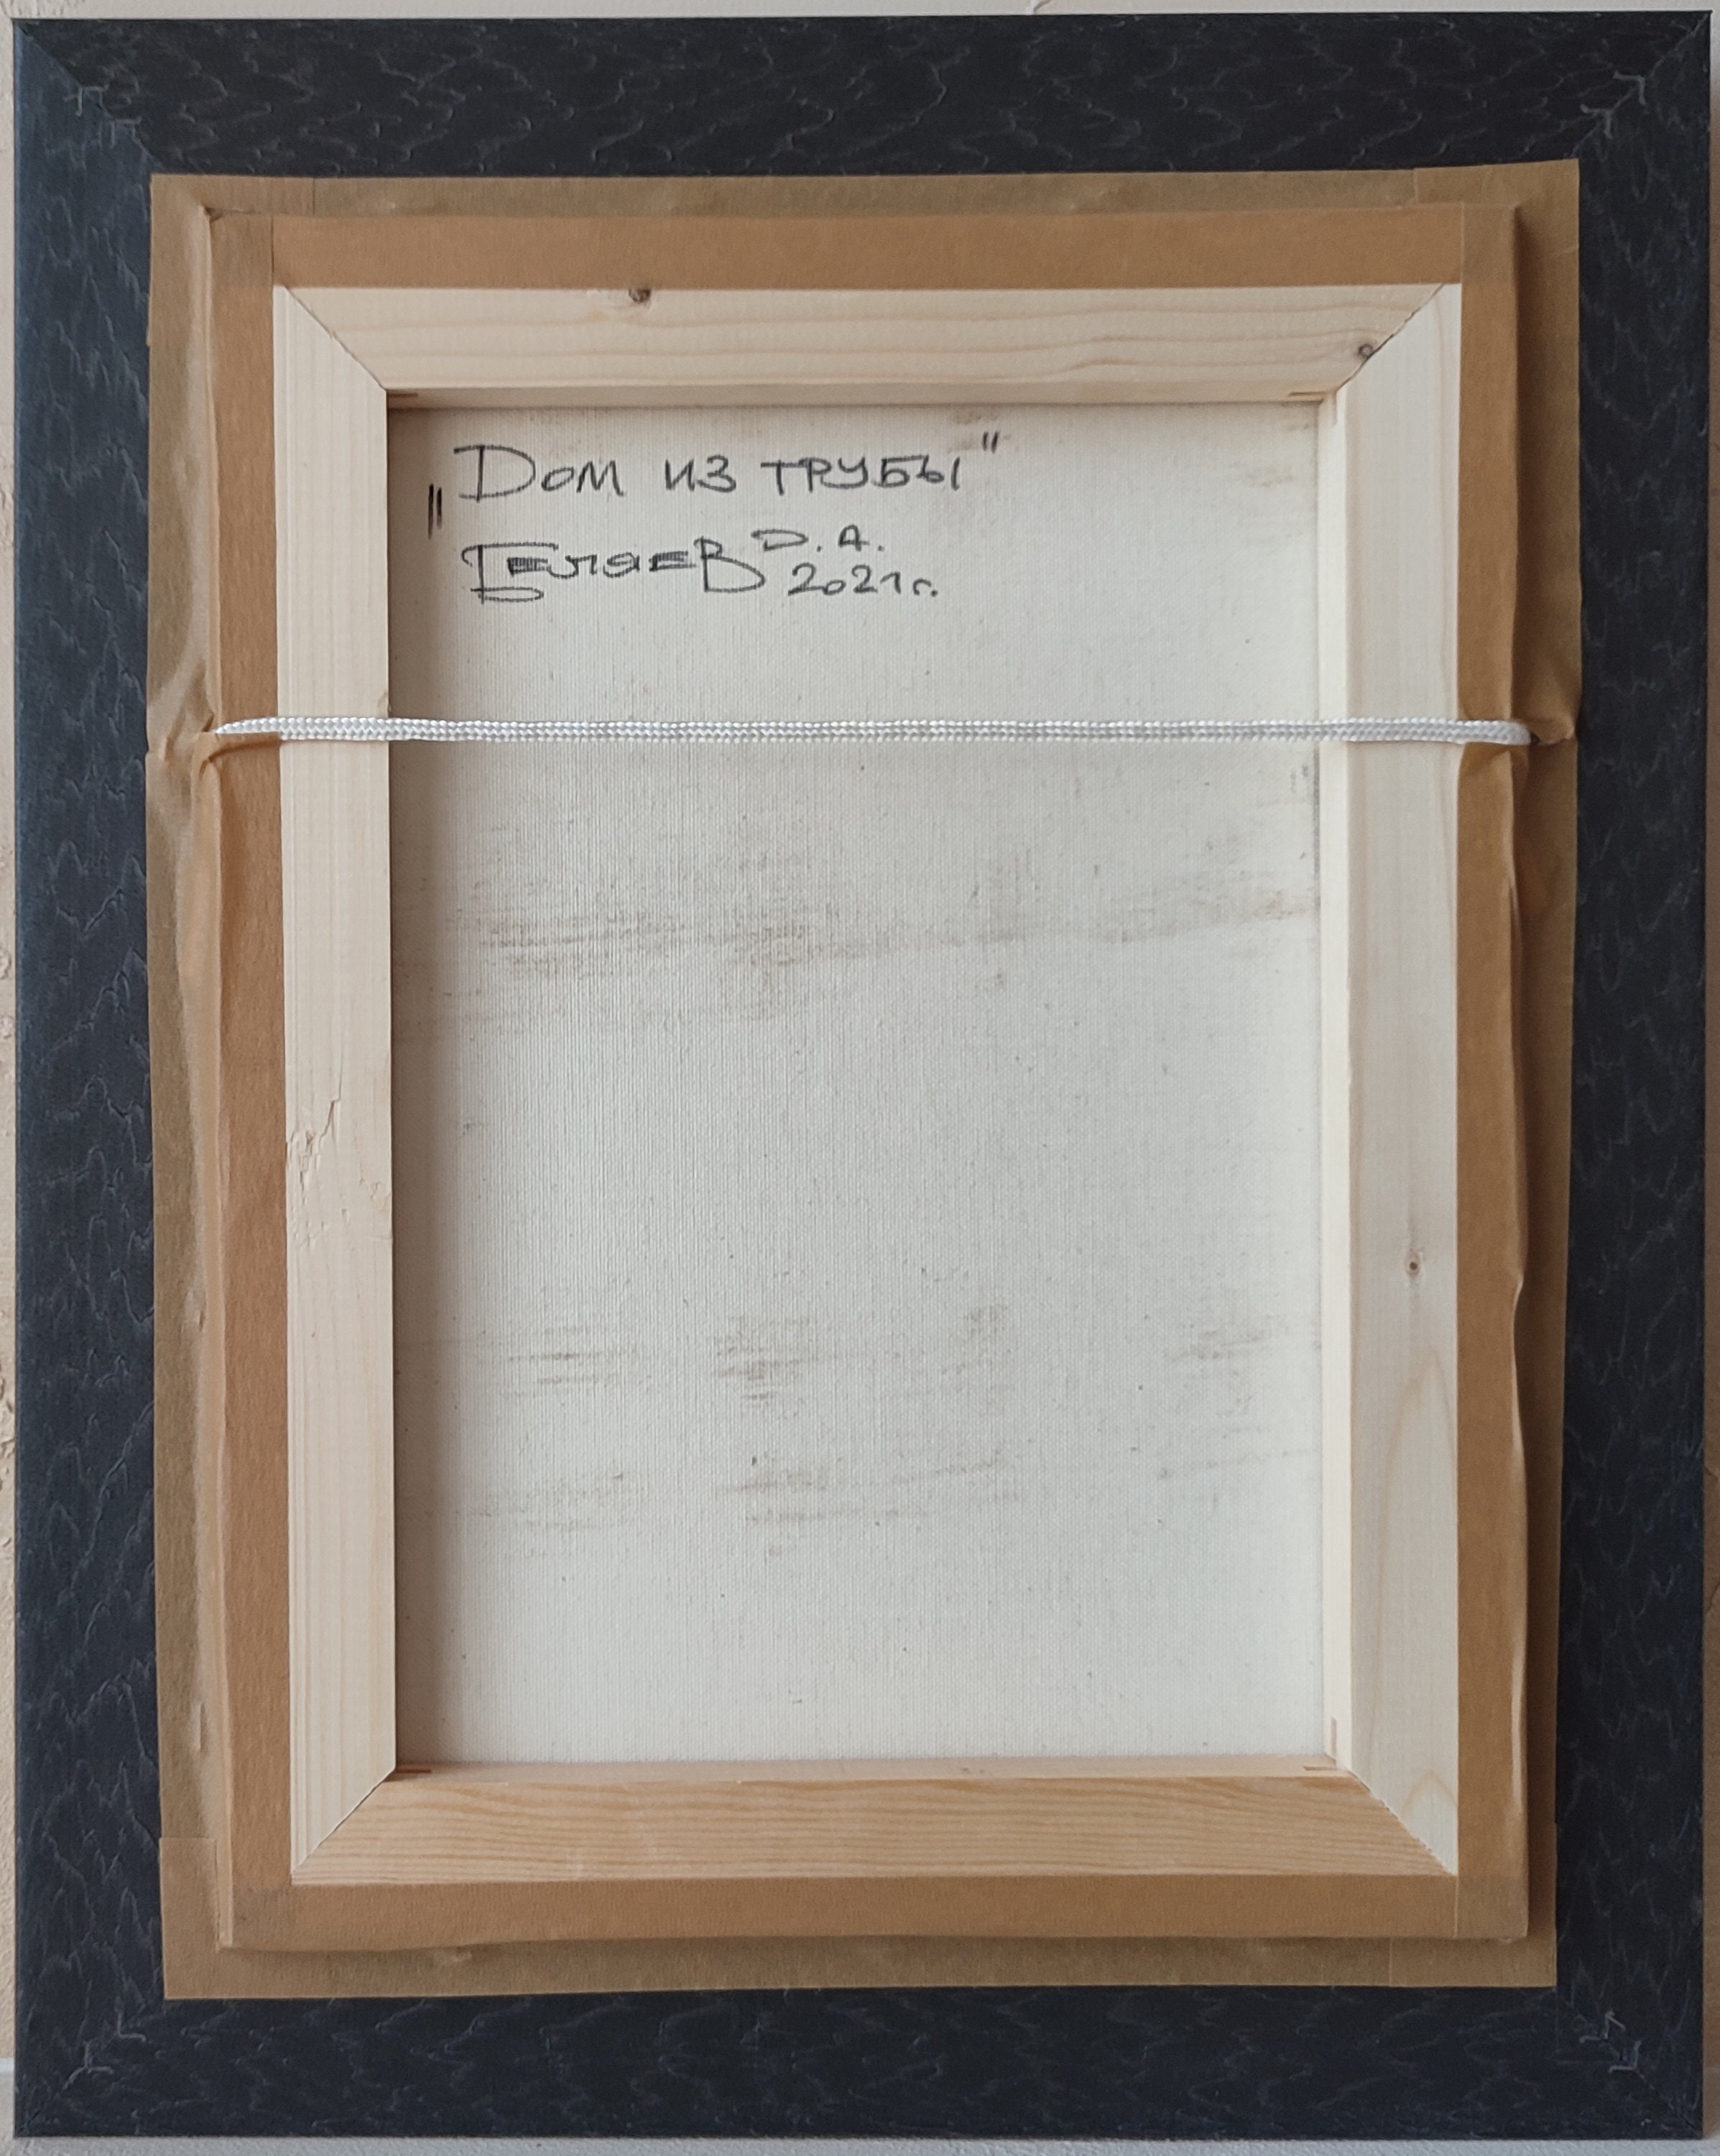 „Дом из трубы"
Беляев Д. А.
2021 г.